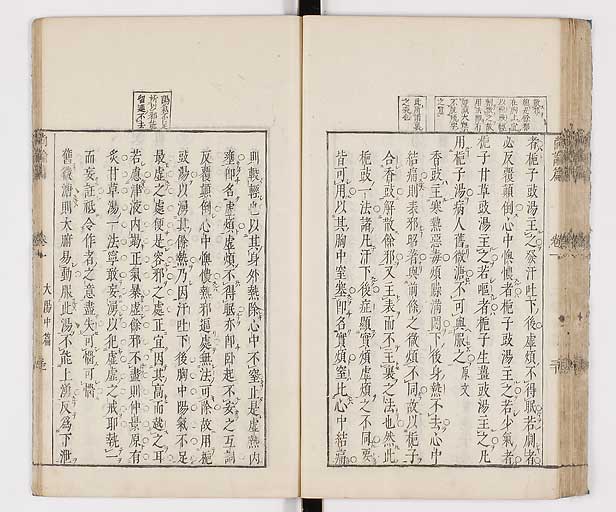 者梔子豉湯主之發汗吐下後虛煩不得眠若劇者
必反覆顛倒心中懊憹者梔子豉湯主之若少氣者
梔子甘草豉湯主之若嘔者梔子生薑豉湯主之凡
用梔子湯病人舊微溏不可與服之原文
香豉主寒熱惡毒煩躁滿悶下後身熱不去心中
結痛則表邪昭著與前條之微煩不同故以梔子
合香豉解散餘邪又主表而不主裏之法也然此
梔豉一法諸凡汗下後症顯實煩虛煩之不同要
皆可用以其胸中窒塞即名實煩窒比心中結痛
則較輕也以其身外熱除心中不窒止是虛熱內
壅即名虛煩虛煩不得眠亦即臥起不安之互詞
反覆顛倒心中懊憹熱邪逼處無法可除故用梔
豉湯以湧其餘熱乃因汗吐下後胸中陽氣不足
最虛之處便是容邪之處正宜因其高而越之耳
若慮津液內竭正氣暴虛餘邪不盡則仲景原有
炙甘草湯一法寧敢妄湧以犯虛虛之戒耶執一
而妄詆祗令作者之意盡失可慨可慨
舊微溏則大腑易動服此湯不能上湧反爲下泄
太陽中篇